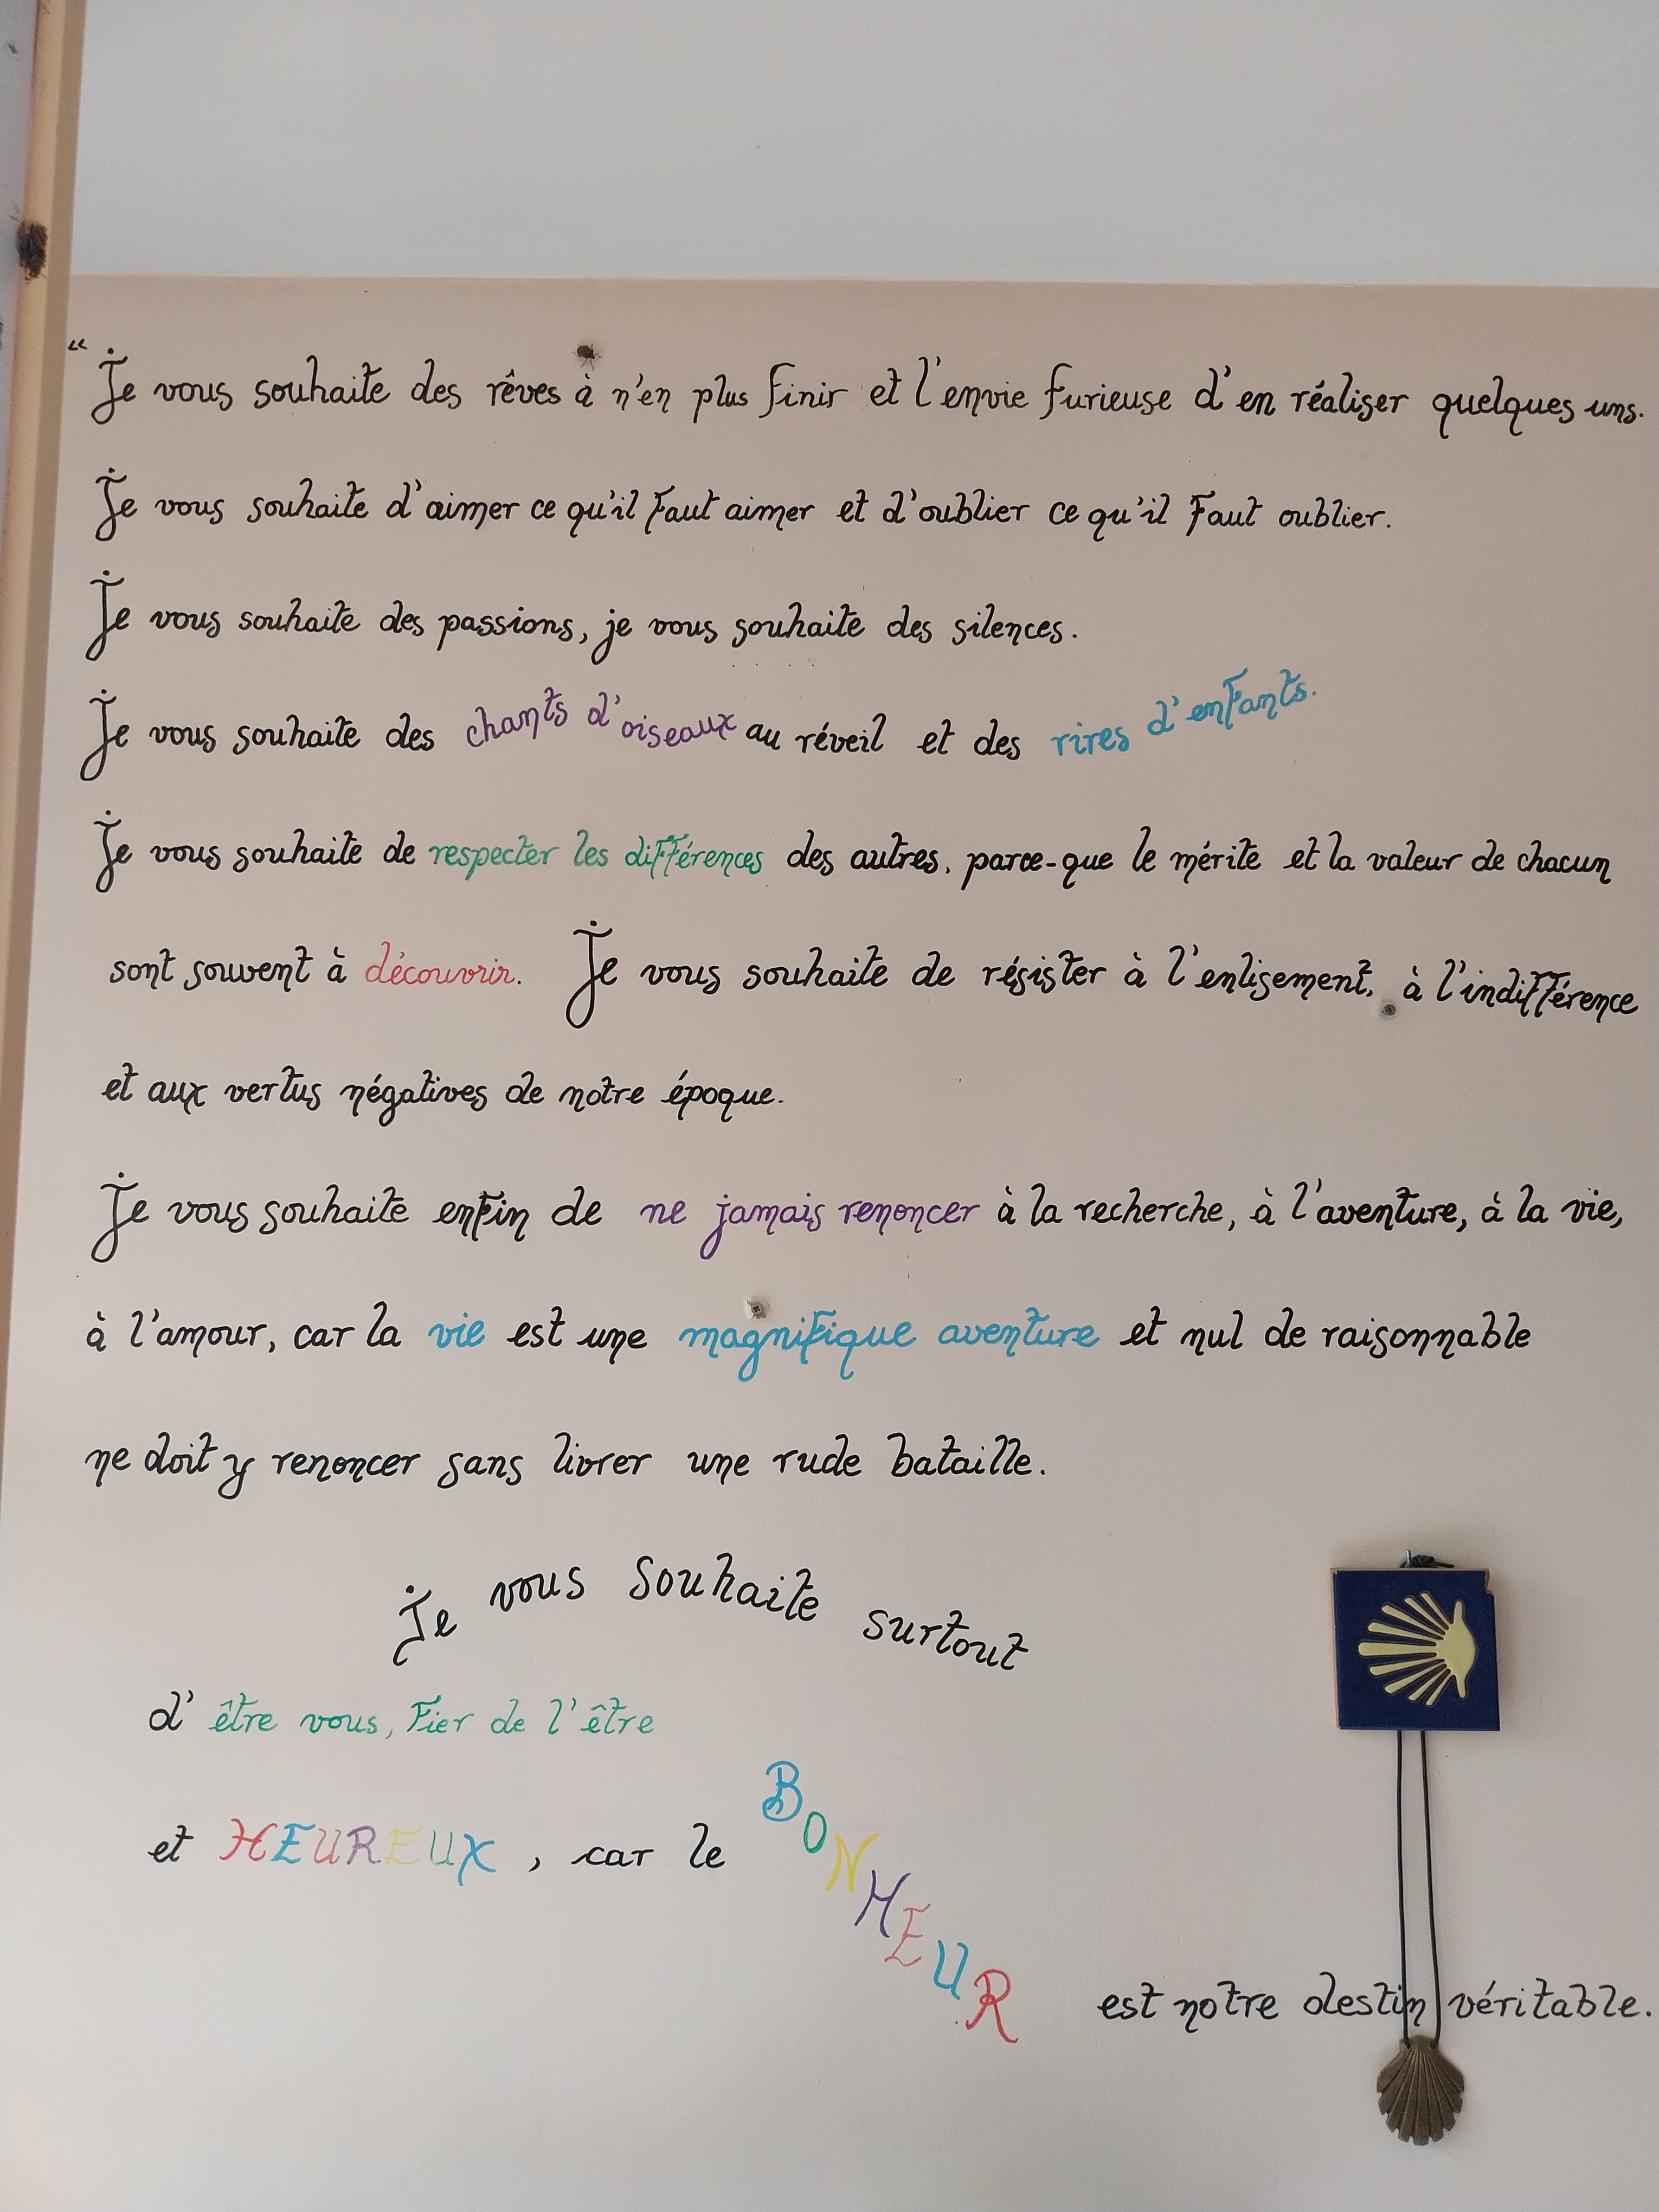 “Je vous souhaite des rêves à n'en plus finir et l'envie furieuse d'en réaliser quelques uns.
Je vous souhaite d'aimer ce qu'il faut aimer et d'oublier ce qu'il faut oublier.
Je vous souhaite des passions, je vous souhaite des silences.
Je vous souhaite des chants d'oiseaux au réveil et des rires d'enfants.
Je vous souhaite de respecter les différences des autres, parce-que le mérite et la valeur de chacun
sont souvent à découvrir. Je vous souhaite de résister à l'enlisement, à l'indifférence
et aux vertus négatives de notre époque.
Je vous souhaite enfin de ne jamais renoncer à la recherche, à l'aventure, à la vie,
à l'amour, car la vie est une magnifique aventure et nul de raisonnable
ne doit y renoncer sans livrer une rude bataille.
Je vous souhaite surtout
d'être vous, fier de l'être
et HEUREUX, car le BONHEUR
est notre destin véritable.